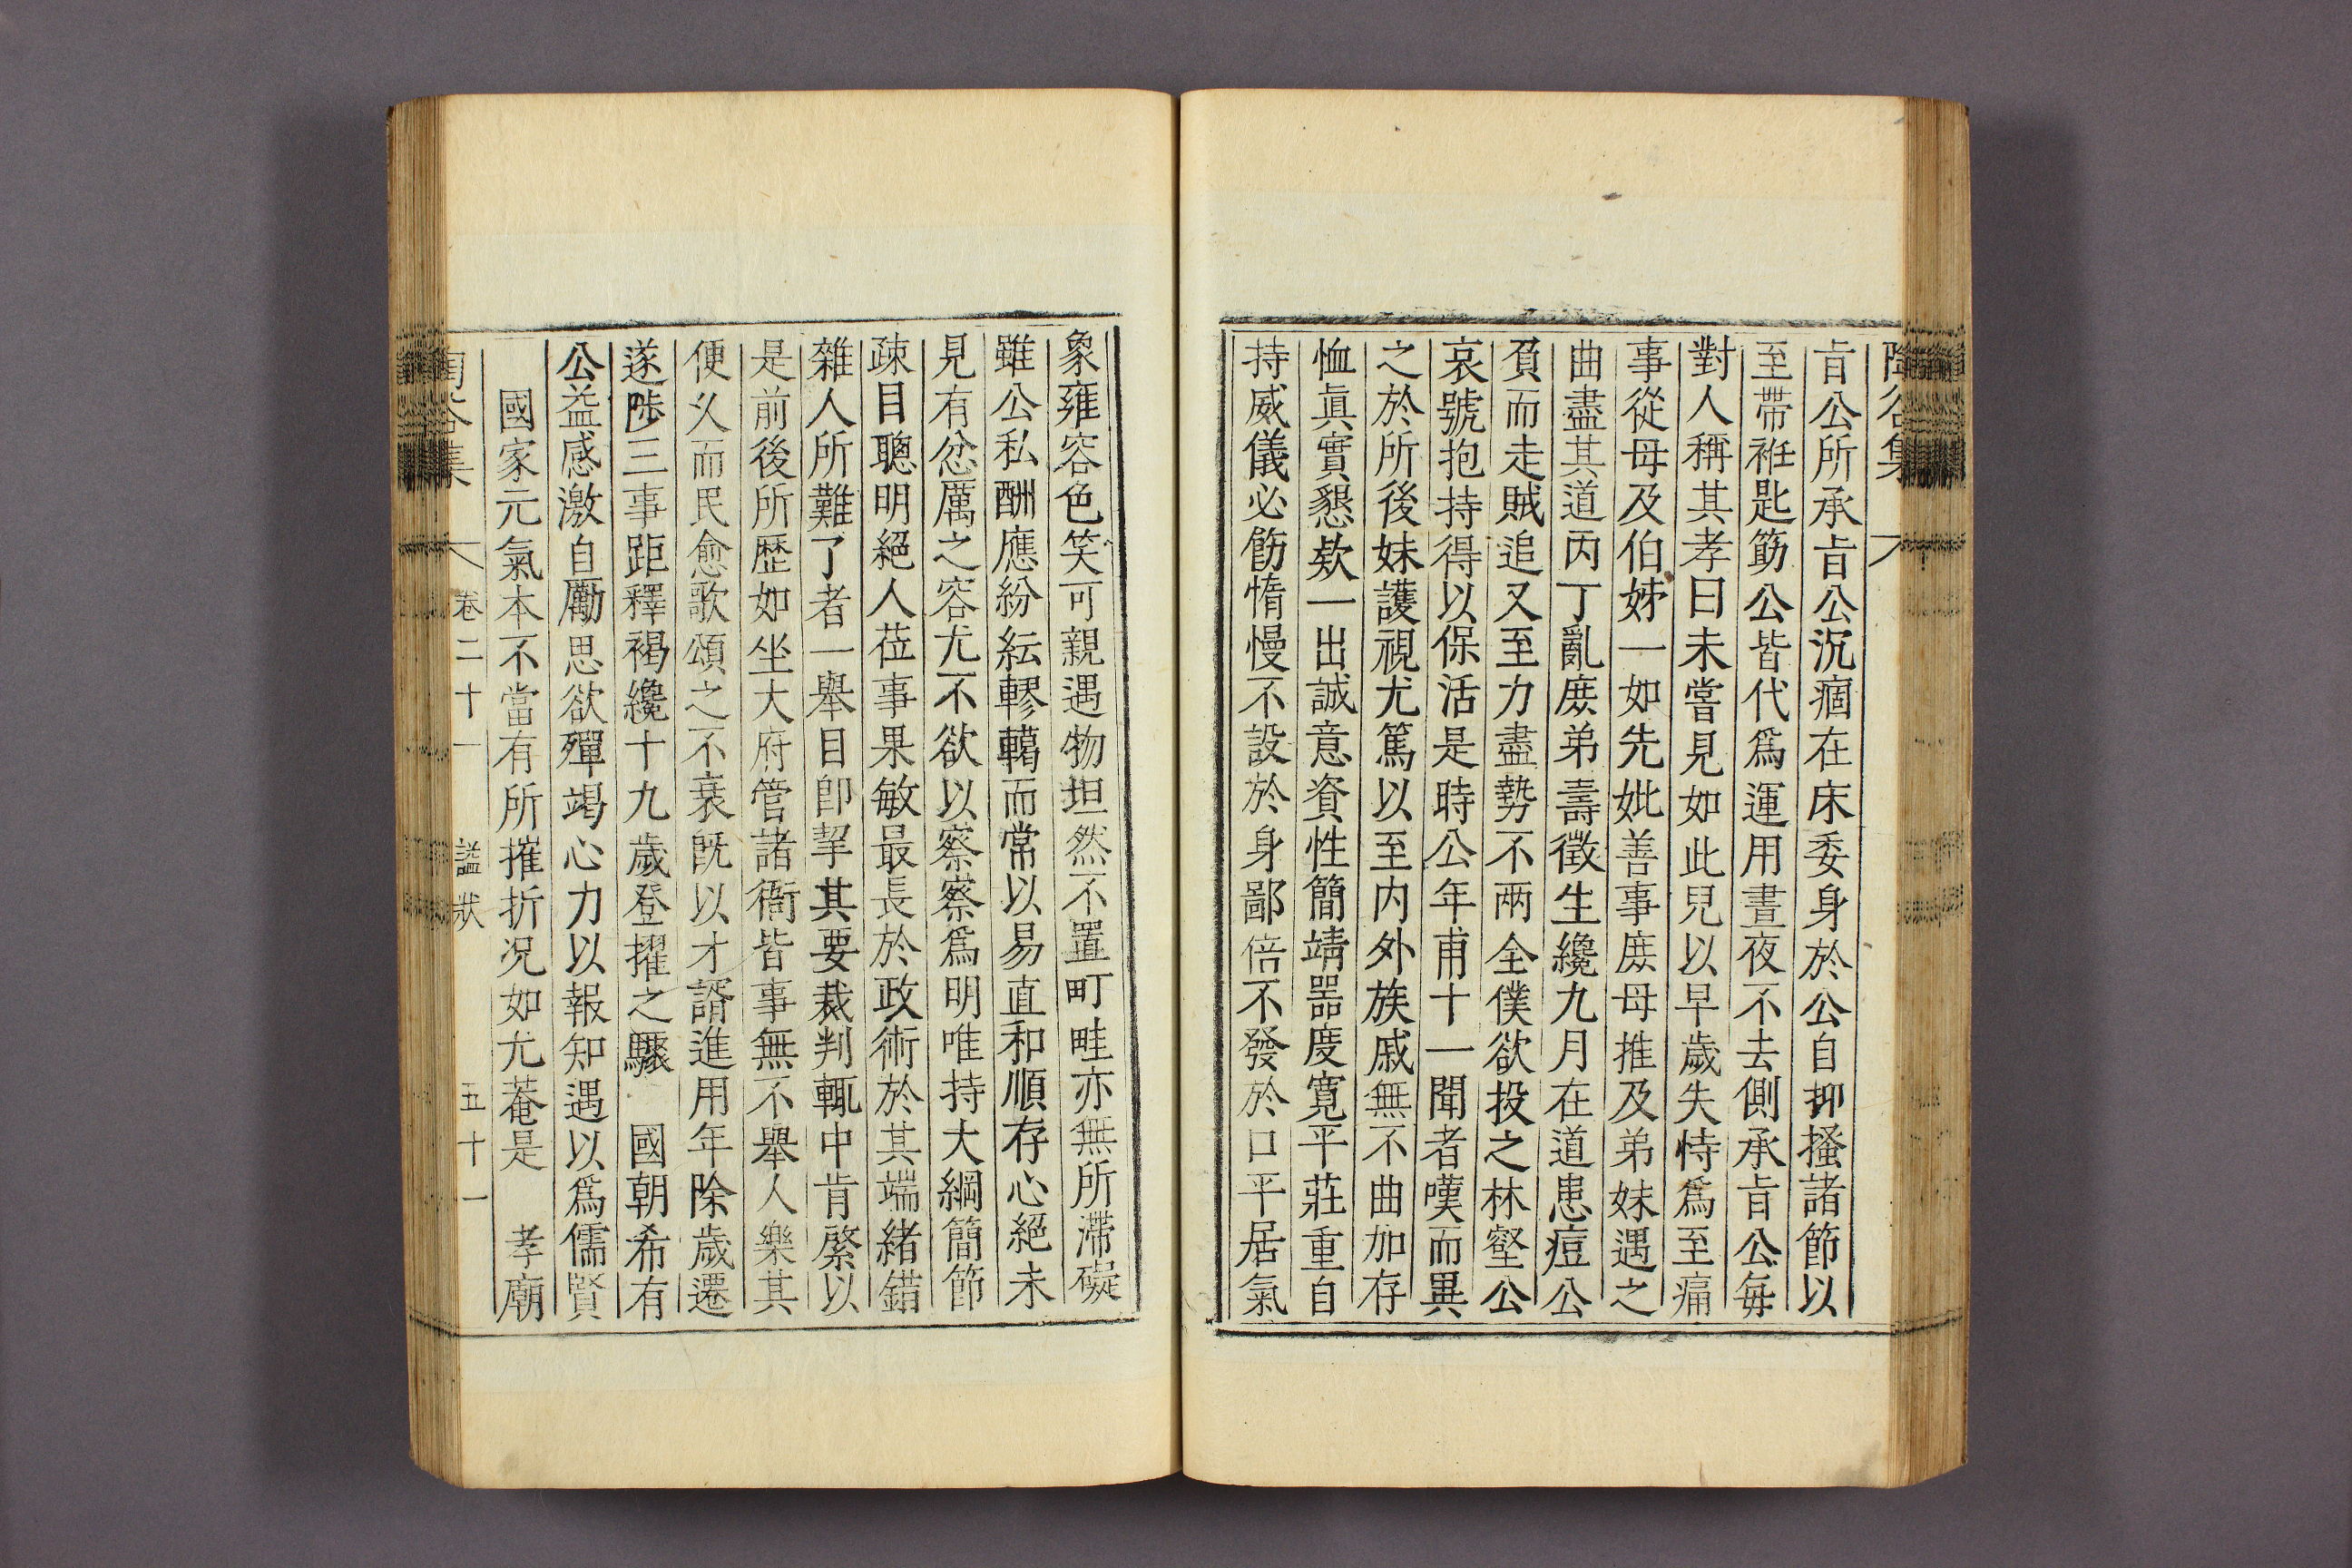 陶谷集
旨公所承旨公沉痼在床委身於公自抑搔諸節以
至帶袵匙筯公皆代爲運用晝夜不去側承旨公每
對人稱其孝曰未嘗見如此兒以早歲失恃爲至痛
事從母及伯姊一如先妣善事庶母推及弟妹遇之
曲盡其道丙丁亂庶弟壽徵生纔九月在道患痘公
負而走賊追又至力盡勢不兩全僕欲投之林壑公
哀號抱持得以保活是時公年甫十一聞者嘆而異
之於所後妹護視尤篤以至内外族戚無不曲加存
恤眞實懇欵一出誠意資性簡靖噐度寬平莊重自
持威儀必飭惰慢不設於身鄙倍不發於口平居氣
象雍容色笑可親遇物坦然不置町畦亦無所滯礙
雖公私酬應紛紜轇轕而常以易直和順存心絕未
見有忿厲之容尤不欲以察察爲明唯持大綱簡節
疎目聰明絕人莅事果敏最長於政術於其端緖錯
雜人所難了者一舉目卽挈其要裁判輒中肯綮以
是前後所歷如坐大府管諸衙皆事無不舉人樂其
便久而民愈歌頌之不衰旣以才諝進用年除歲遷
遂陟三事距釋褐纔十九歲登擢之驟　國朝希有
公益感激自勵思欲殫竭心力以報知遇以爲儒賢
國家元氣本不當有所摧折况如尤菴是　孝廟
陶谷集　卷二十一　諡狀　五十一